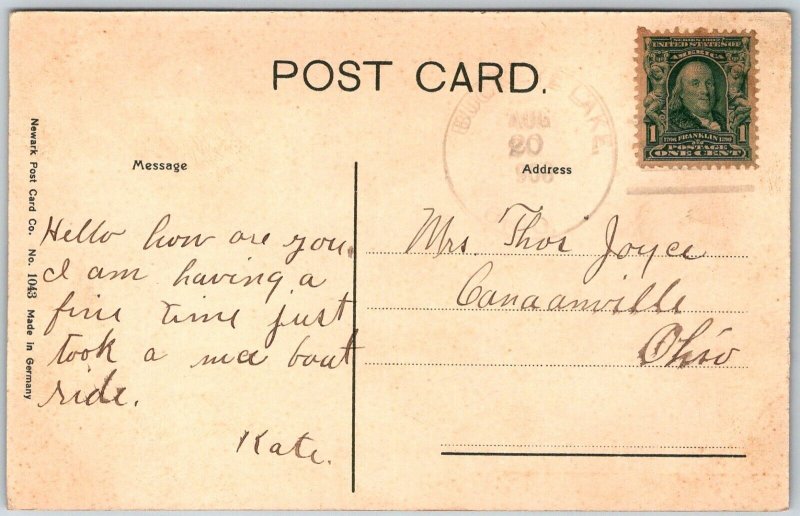 POST CARD.
SERIES 1902
UNITED STATES OF
AMERICA
1 FRANKLIN 1
POSTAGE
ONE CENT
LAKE,
AUG
20
Message
Address
Newark Post Card Co. No. 1043 Made in Germany
Hello how are you
I am having a
fine time just
took a nice boat
ride.
Kate.
Mrs. Thos Joyce
Canaanville
Ohio